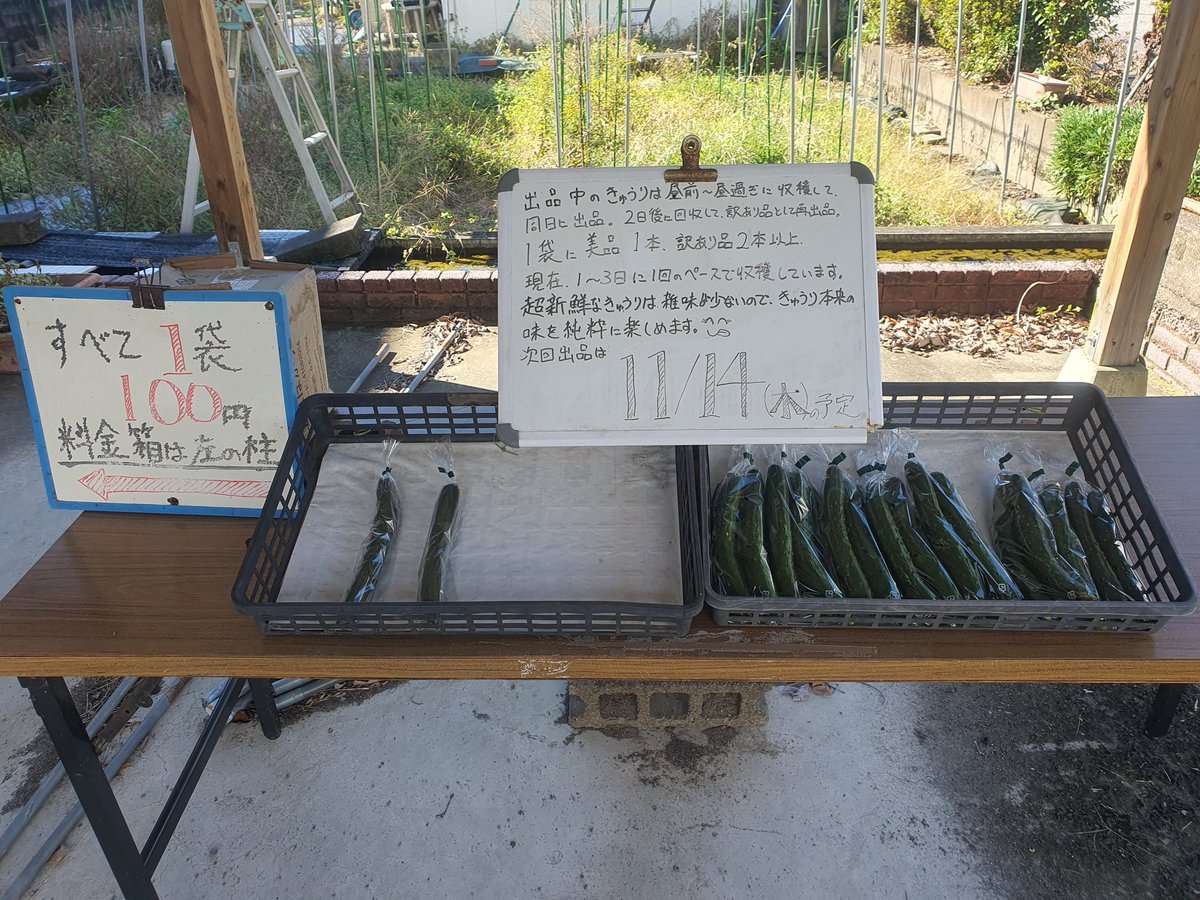 すべて1袋
100円
料金箱は左の柱
出品中のきゅうりは昼前～昼過ぎに収穫して、
同日に出品。2日後に回収して、訳あり品として再出品。
1袋に美品1本、訳あり品2本以上.
現在、1～3日に1回のペースで収穫しています。
超新鮮なきゅうりは雑味が少ないので、きゅうり本来の
味を純粋に楽しめます。
次回出品は
11/14(木)の予定